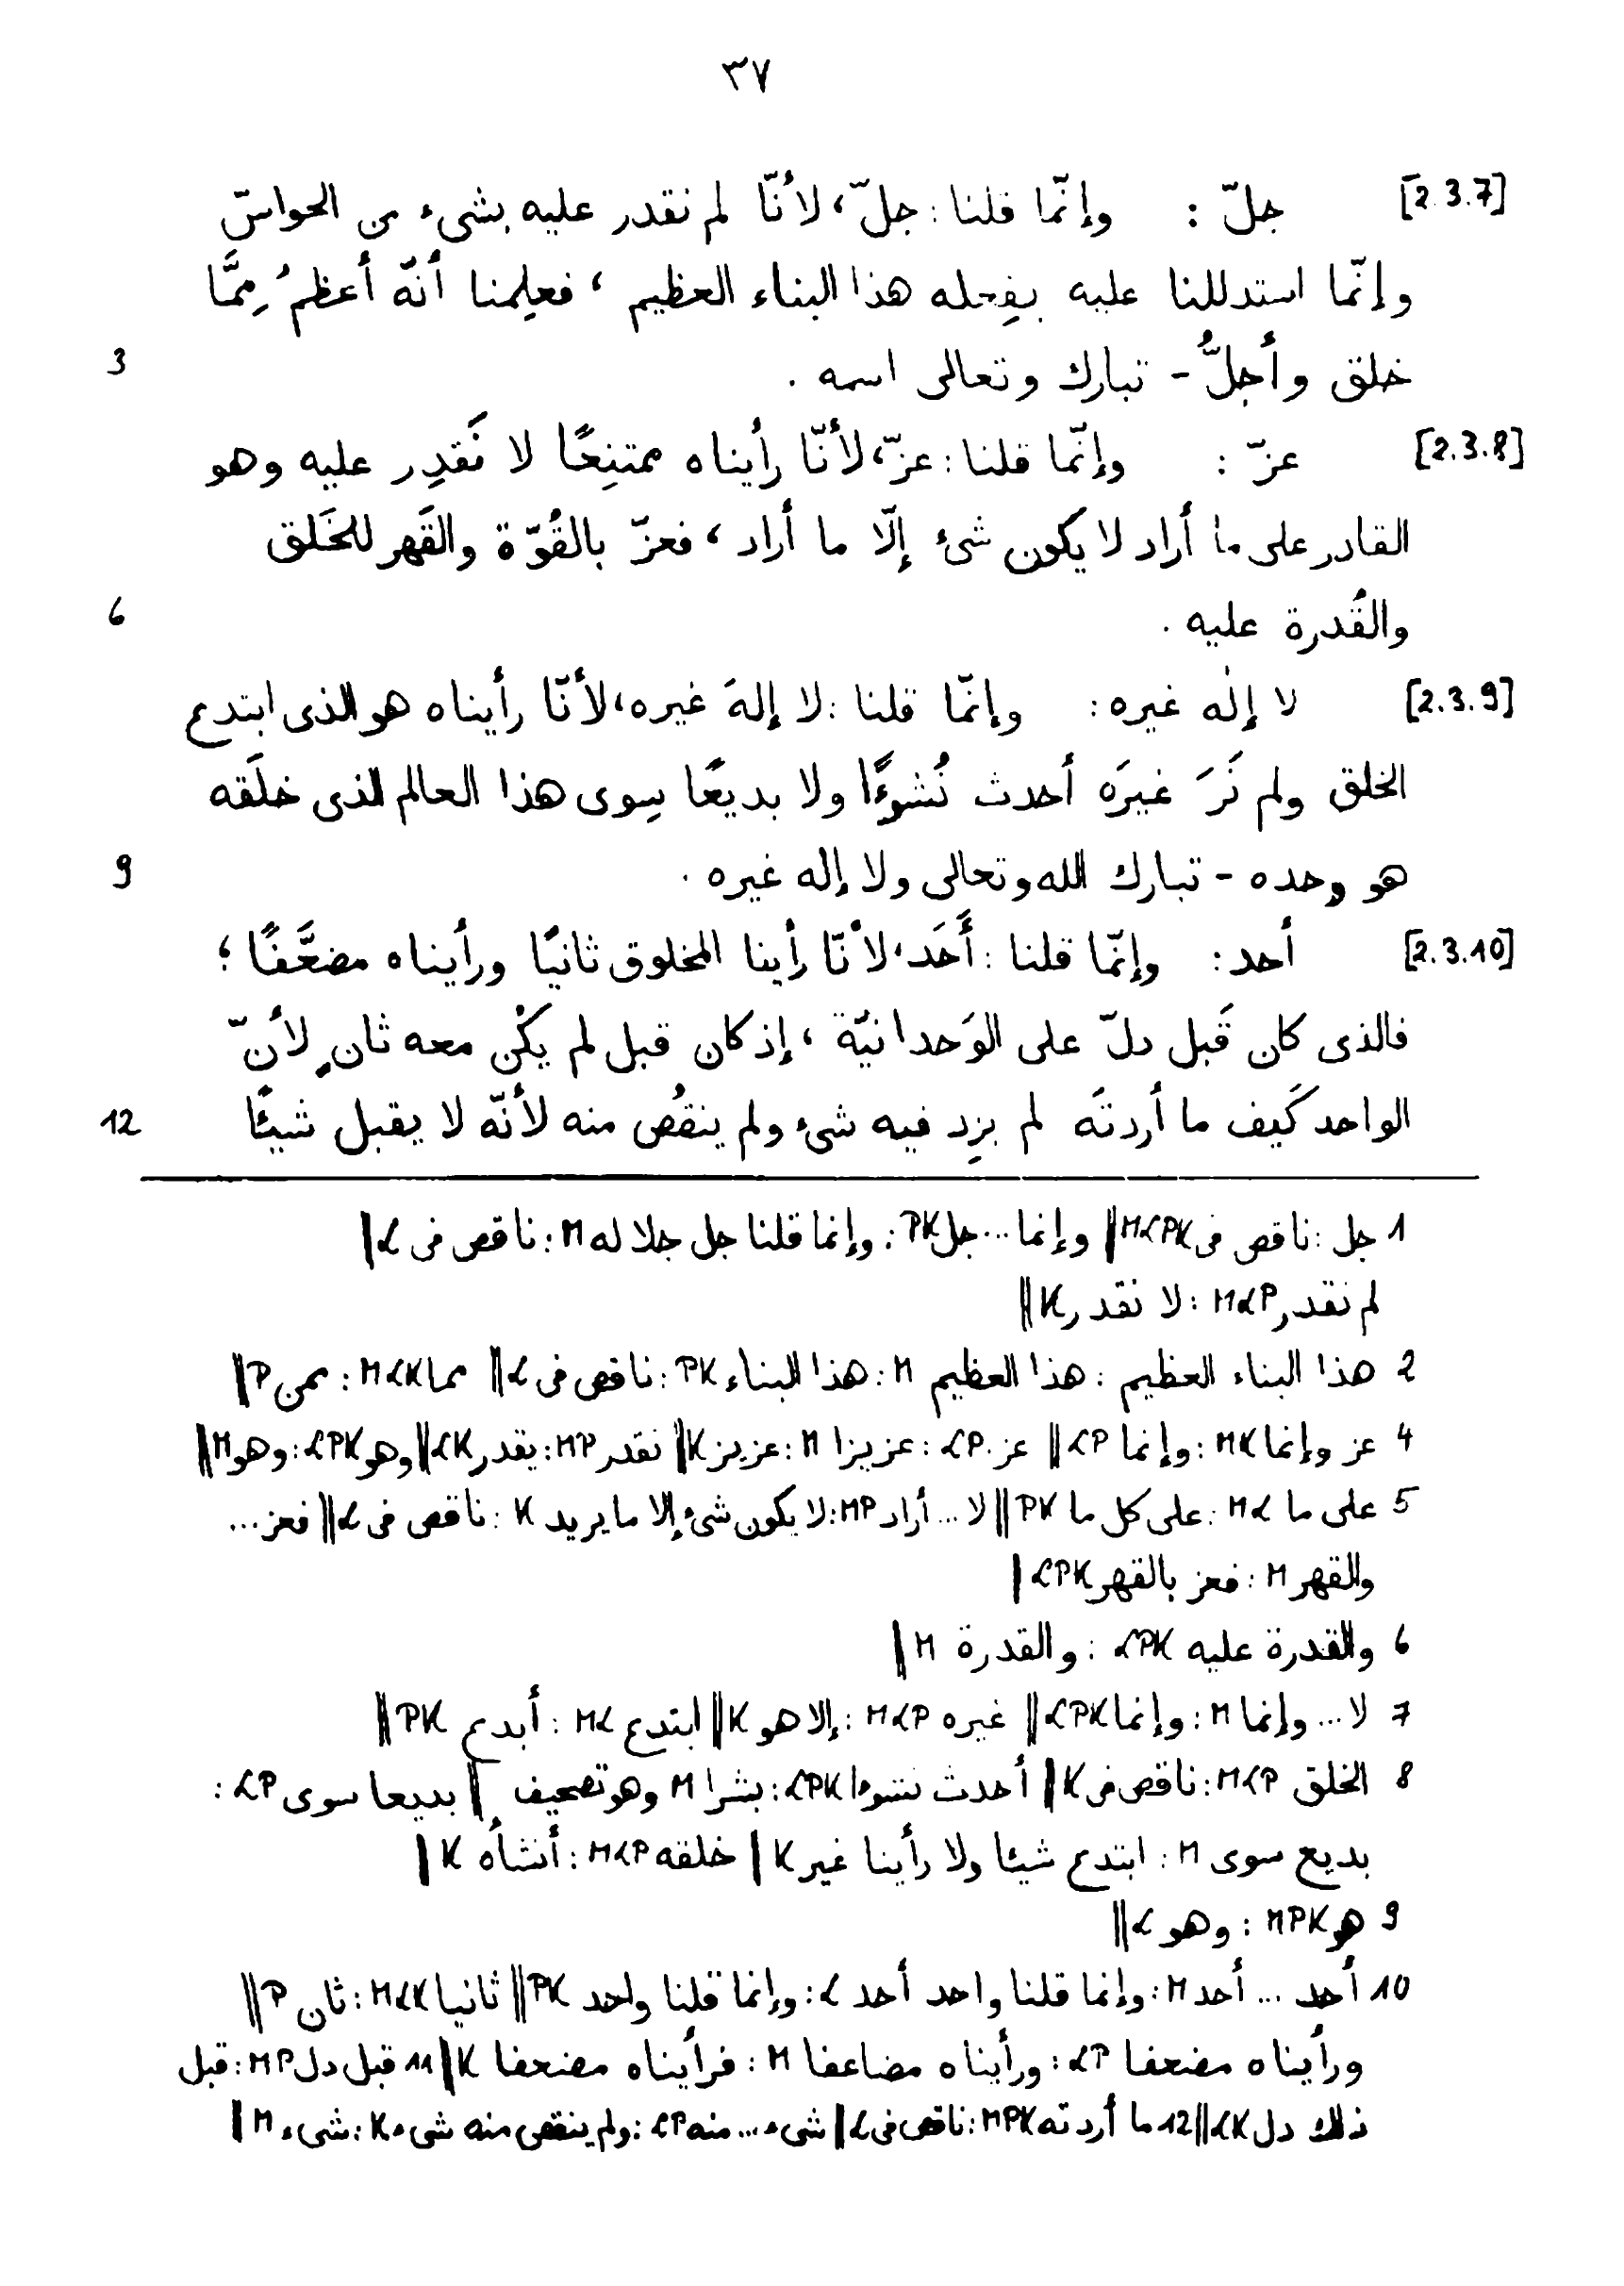 ٣٧
[2.3.7] جلّ : وإنّما قلنا : جلّ، لأنّا لم نقدر عليه بشىء من الحواسّ
وإنّما استدللنا عليه بفِعله هذا البناء العظيم ، فعلِمنا أنّه أعظمُ مِمَّا
3 خلق وأجلُّ - تبارك وتعالى اسمه .
[2.3.8] عزّ : وإنّما قلنا : عزّ، لأنّا رأيناه ممتنِعًا لا نَقدِر عليه وهو
القادر على ما أراد لا يكون شئ إلّا ما أراد ، فعزّ بالقُوّة والقَهر للخَلق
6 والقُدرة عليه .
[2.3.9] لا إلٰه غيره : وإنّما قلنا : لا إلهَ غيره، لأنّا رأيناه هو الذى ابتدع
الخلق ولم نَرَ غيرَه أحدث نُشوءًا ولا بديعًا سِوى هذا العالم الذى خلَقه
9 هو وحده - تبارك الله وتعالى ولا إله غيره .
[2.3.10] أحد : وإنّما قلنا : أَحَد، لأنّا رأينا المخلوق ثانيًا ورأيناه مضعَّفًا ؛
فالذى كان قَبل دلّ على الوَحدانيّة ، إذ كان قبل لم يكُن معه ثانٍ لأنّ
12 الواحد كَيف ما أردتَه لم يزِد فيه شىء ولم ينقُص منه لأنّه لا يقبل شيئًا
1 جل : ناقص فى MLPK ‖ وإنما ... جل PK : وإنما قلنا جل جلاله M : ناقص فى L |
لم نقدر MLP : لا نقدر K ‖
2 هذا البناء العظيم : هذا العظيم M : هذا البناء PK : ناقص فى L ‖ مما MLK : ممن P ‖
4 عز وإنما MK : وإنما LP ‖ عز LP : عزيزا M : عزيز K ‖ نقدر MP : يقدر LK ‖ وهو LPK : وهو M ‖
5 على ما ML : على كل ما PK ‖ لا ... أراد MP : لا يكون شئ إلا ما يريد K : ناقص فى L ‖ فعز ...
والقهر M : فعز بالقهر LPK |
6 والقدرة عليه LPK : والقدرة M |
7 لا ... وإنما M : وإنما LPK ‖ غيره MLP : إلا هو K ‖ ابتدع ML : أبدع PK ‖
8 الخلق MLP : ناقص فى K ‖ أحدث نشوءا LPK : بشرا M وهو تصحيف ‖ بديعا سوى LP :
بديع سوى M : ابتدع شيئا ولا رأينا غير K | خلقه MLP : أنشأه K |
9 هو MPK : وهو L ‖
10 أحد ... أحد M : وإنما قلنا واحد أحد L : وإنما قلنا واحد PK ‖ ثانيا MLK : ثان P ‖
ورأيناه مضعفا LP : ورأيناه مضاعفا M : فرأيناه مضعفا K ‖ 11 قبل دل MP : قبل
ذلك دل LK ‖ 12 ما أردته MPK : ناقص فى L | شىء ... منه LP : ولم ينقص منه شىء K : شىء M |